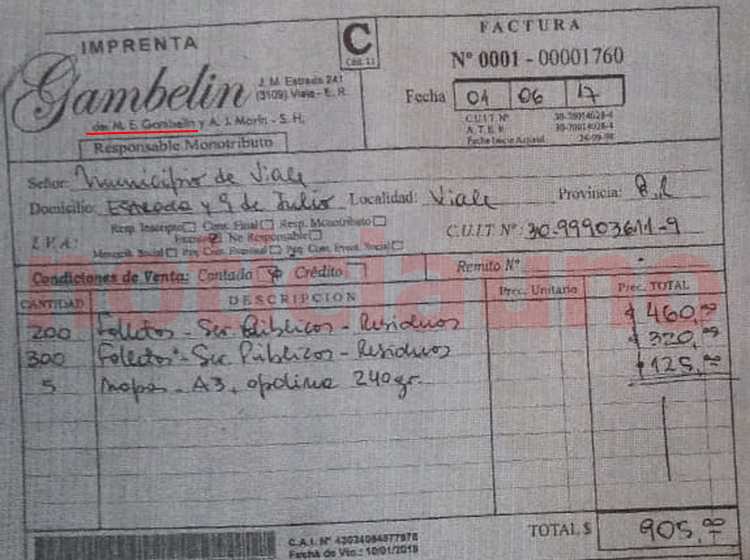 IMPRENTA
Gambelin
de: M. E. Gambelin y A. J. Morin - S. H.
J. M. Estrada 241
(3109) Viale - E. R.
Responsable Monotributo
C
Cód. 11
FACTURA
Nº 0001 - 00001760
Fecha 01 06 17
C.U.I.T. Nº 30-70014028-4
A.T.E.R. 30-70014028-4
Fecha Inicio Activid.
Señor: Municipio de Viale
Domicilio: Estrada y 9 de Julio Localidad: Viale Provincia: E.R
I.V.A: Resp. Inscripto Cons. Final Resp. Monotributo
Exento No Responsable C.U.I.T Nº: 30-99903611-9
Monotrib. Social Peq. Cont. Eventual Peq. Cont. Event. Social
Condiciones de Venta: Contado Crédito Remito Nº
CANTIDAD DESCRIPCION Prec. Unitario Prec. TOTAL
200 Folletos - Ser. Públicos - Residuos $ 460,00
300 Folletos - Ser. Públicos - Residuos $ 320,00
5 mapas - A3, opalina 240 gr. $ 125,00
noticiauno
C.A.I. Nº 43034084877978
Fecha de Vto.: 10/01/2018
TOTAL $ 905,00